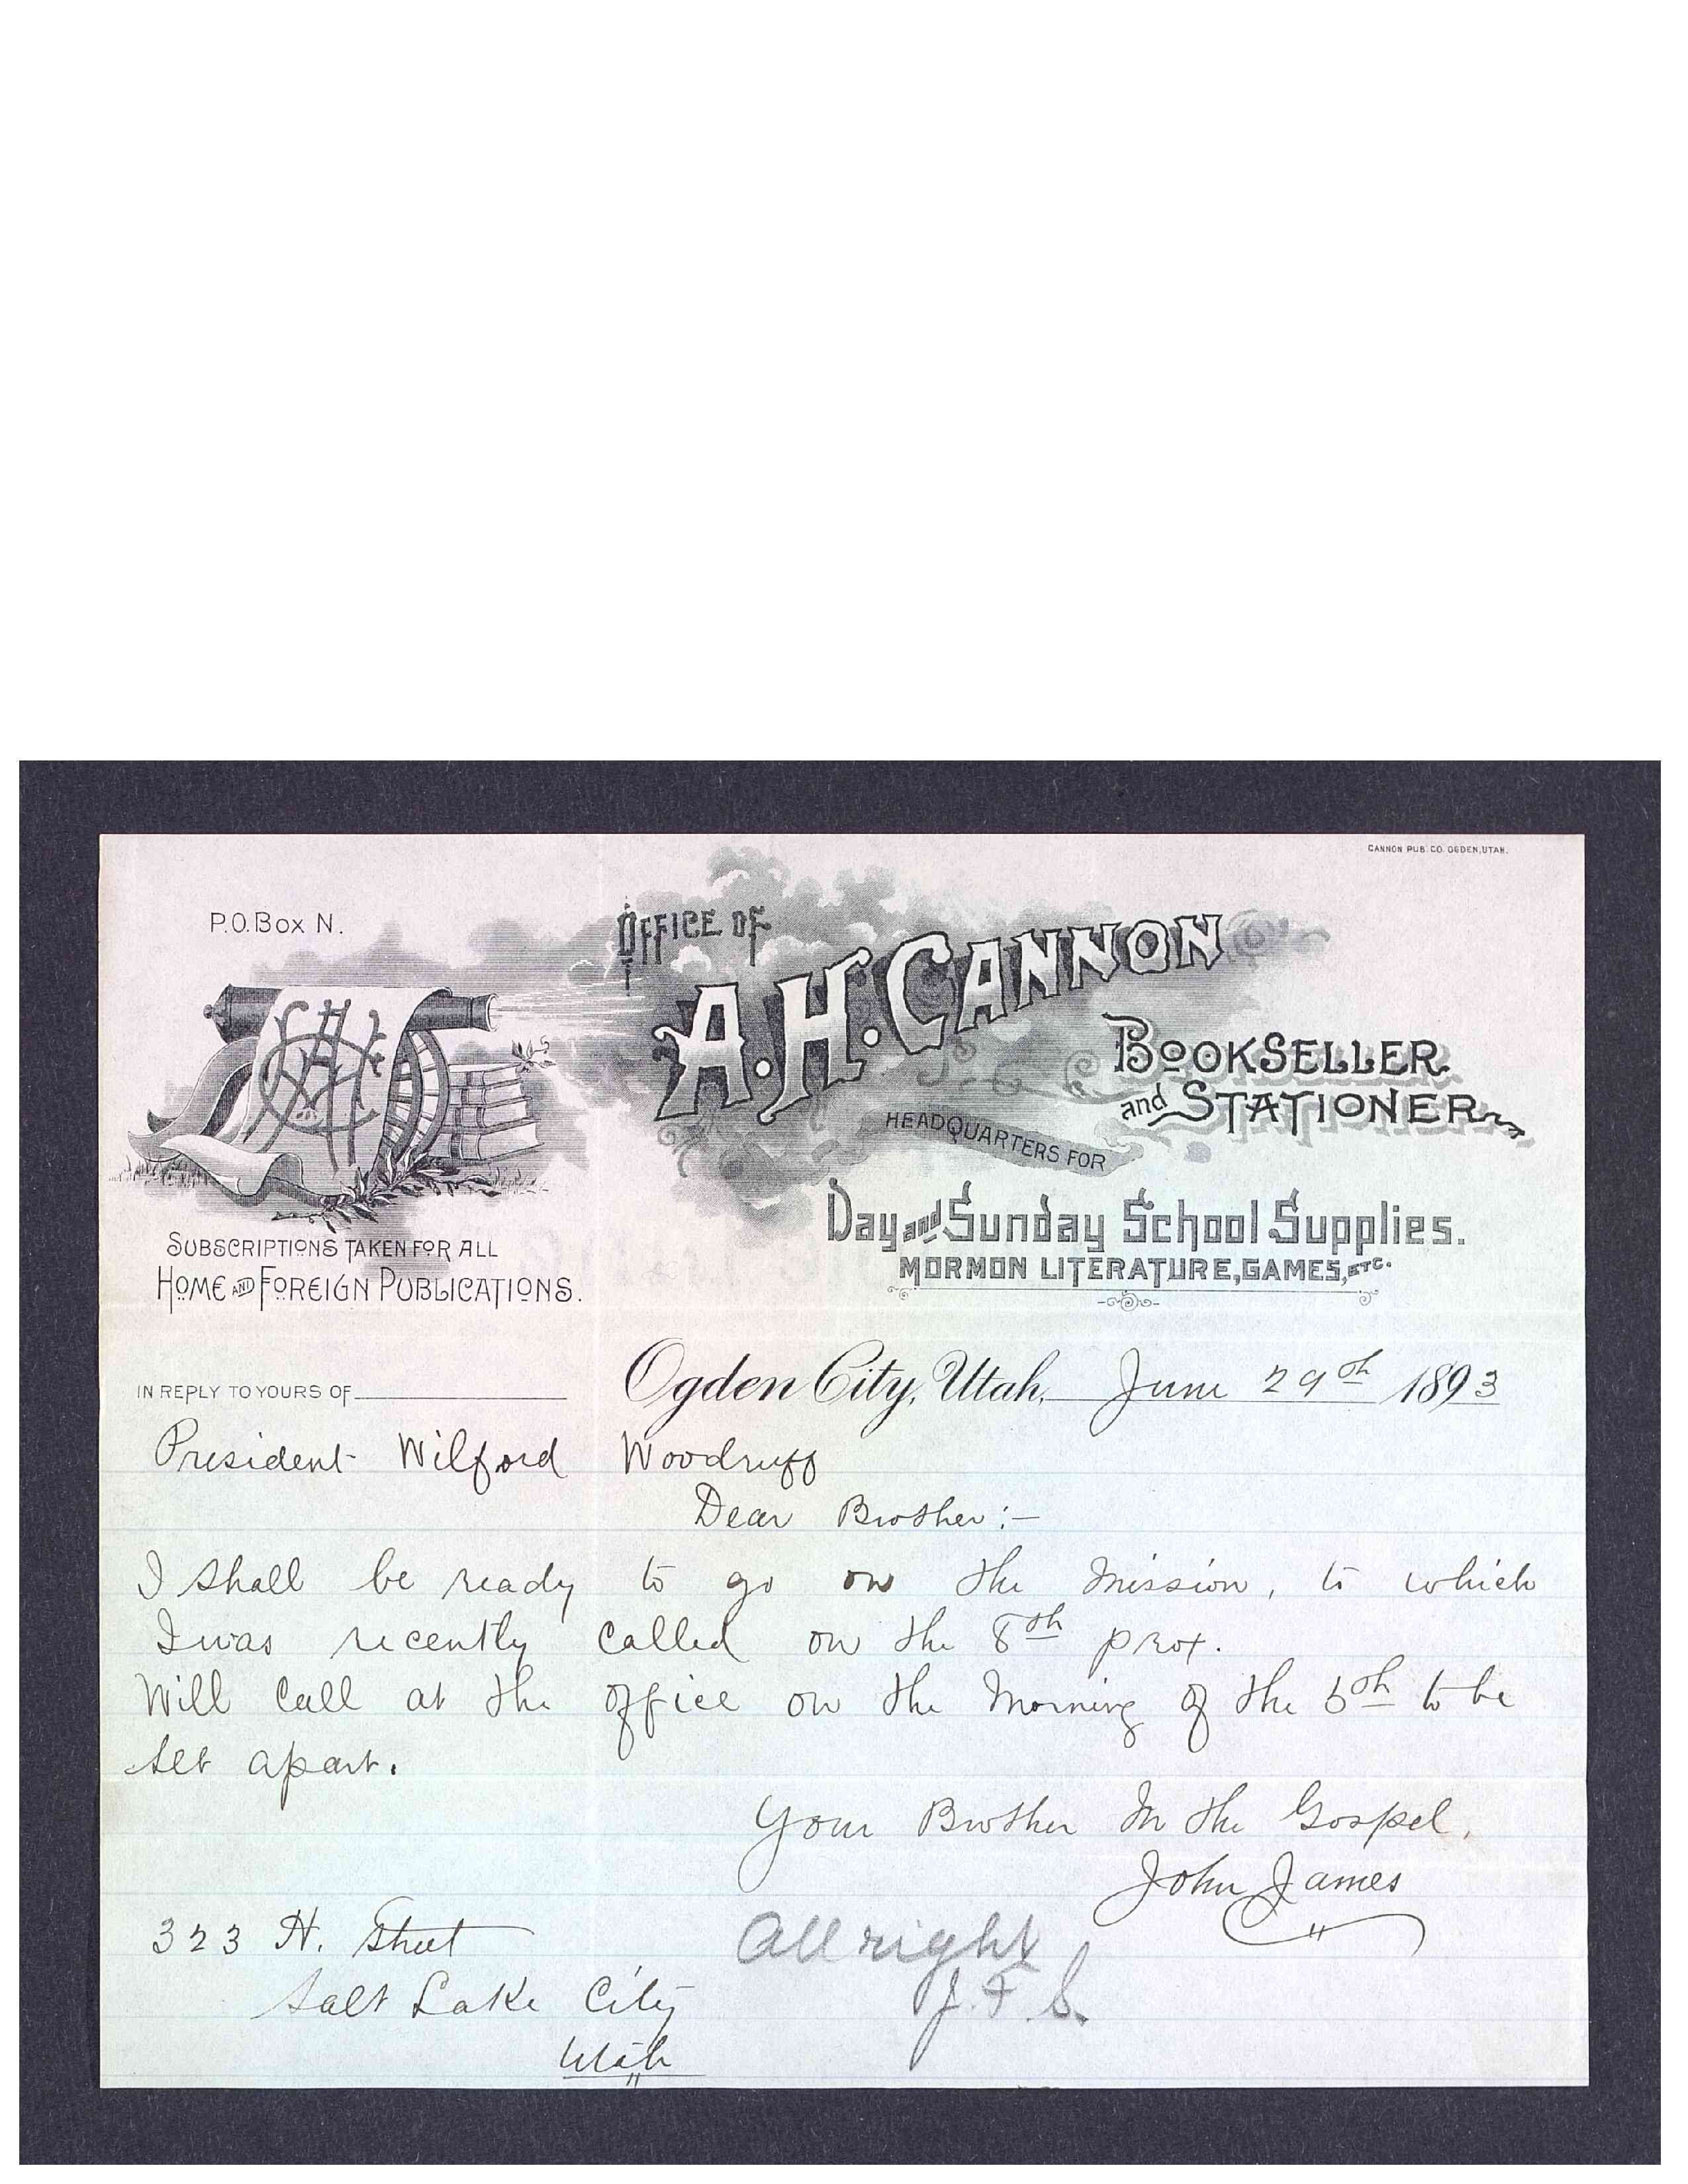 CANNON PUB. CO. OGDEN, UTAH.
P.O. Box N.
OFFICE OF
A. H. CANNON
BOOKSELLER
and STATIONER
HEADQUARTERS FOR
Day and Sunday School Supplies.
MORMON LITERATURE, GAMES, ETC.
SUBSCRIPTIONS TAKEN FOR ALL
HOME AND FOREIGN PUBLICATIONS.
IN REPLY TO YOURS OF
Ogden City, Utah, June 29th 1893
President Wilford Woodruff
Dear Brother:—
I shall be ready to go on the Mission, to which
I was recently called on the 8th prox.
Will call at the office on the Morning of the to be
set apart.
Your Brother In the Gospel,
John James
323 H. Street
Salt Lake City
Utah
All right
J. F. S.